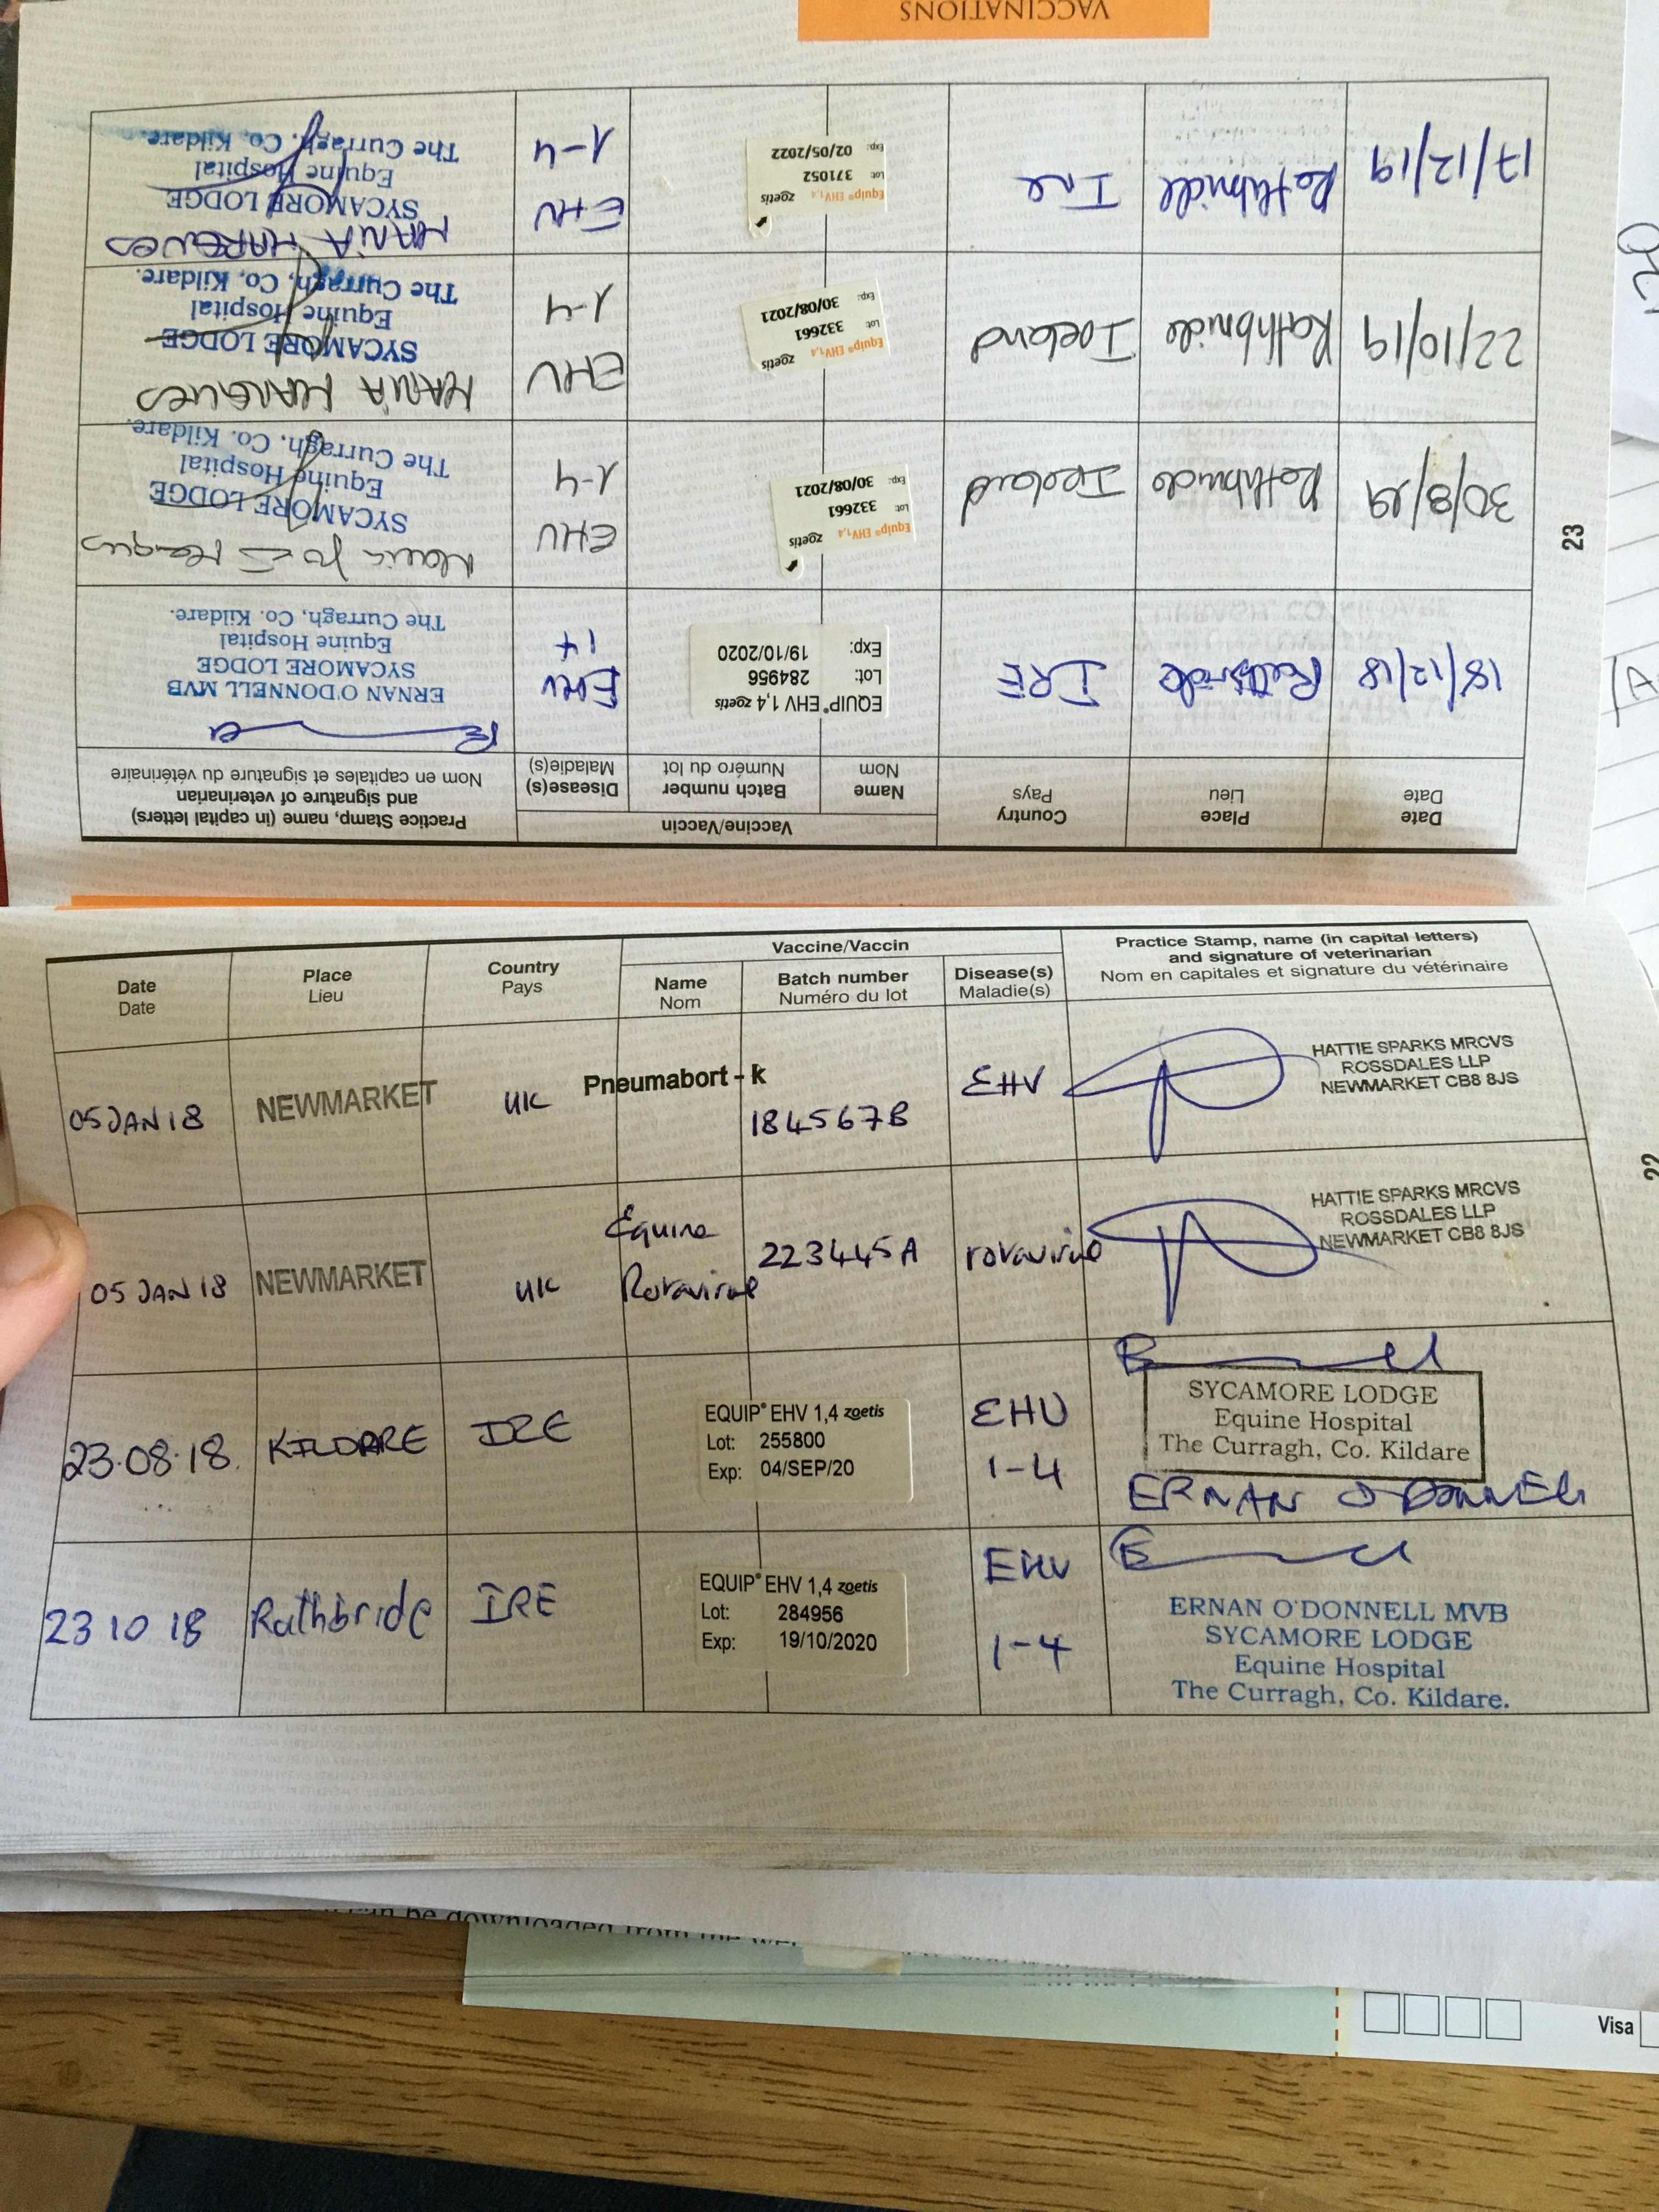 Date
Date
Place
Lieu
Country
Pays
Vaccine/Vaccin
Name
Nom
Batch number
Numéro du lot
Disease(s)
Maladie(s)
Practice Stamp, name (in capital letters)
and signature of veterinarian
Nom en capitales et signature du vétérinaire
05 JAN 18
NEWMARKET
UK
Pneumabort - k
184567B
EHV
HATTIE SPARKS MRCVS
ROSSDALES LLP
NEWMARKET CB8 8JS
05 JAN 18
NEWMARKET
UK
Equine
Rotavirus
223445A
rotavirus
HATTIE SPARKS MRCVS
ROSSDALES LLP
NEWMARKET CB8 8JS
23.08.18.
KILDARE
IRE
EQUIP® EHV 1,4 zoetis
Lot: 255800
Exp: 04/SEP/20
EHV
1-4
SYCAMORE LODGE
Equine Hospital
The Curragh, Co. Kildare
ERNAN O'DONNELL
23 10 18
Rathbride
IRE
EQUIP® EHV 1,4 zoetis
Lot: 284956
Exp: 19/10/2020
EHV
1-4
ERNAN O'DONNELL MVB
SYCAMORE LODGE
Equine Hospital
The Curragh, Co. Kildare.
22
Date
Date
Place
Lieu
Country
Pays
Vaccine/Vaccin
Name
Nom
Batch number
Numéro du lot
Disease(s)
Maladie(s)
Practice Stamp, name (in capital letters)
and signature of veterinarian
Nom en capitales et signature du vétérinaire
18/12/18
Rathbride
IRE
EQUIP® EHV 1,4 zoetis
Lot: 284956
Exp: 19/10/2020
EHV
14
ERNAN O'DONNELL MVB
SYCAMORE LODGE
Equine Hospital
The Curragh, Co. Kildare.
30/8/19
Rathbride
Ireland
Equip® EHV1,4 zoetis
Lot: 332661
Exp: 30/08/2021
EHV
1-4
Marques
SYCAMORE LODGE
Equine Hospital
The Curragh, Co. Kildare.
22/10/19
Rathbride
Ireland
Equip® EHV1,4 zoetis
Lot: 332661
Exp: 30/08/2021
EHV
1-4
MARIA MARQUES
SYCAMORE LODGE
Equine Hospital
The Curragh, Co. Kildare.
17/12/19
Rathbride
Ire
Equip® EHV1,4 zoetis
Lot: 371052
Exp: 02/05/2022
EHV
1-4
MARIA MARQUES
SYCAMORE LODGE
Equine Hospital
The Curragh, Co. Kildare.
23
VACCINATIONS
can be downloaded from the
Visa